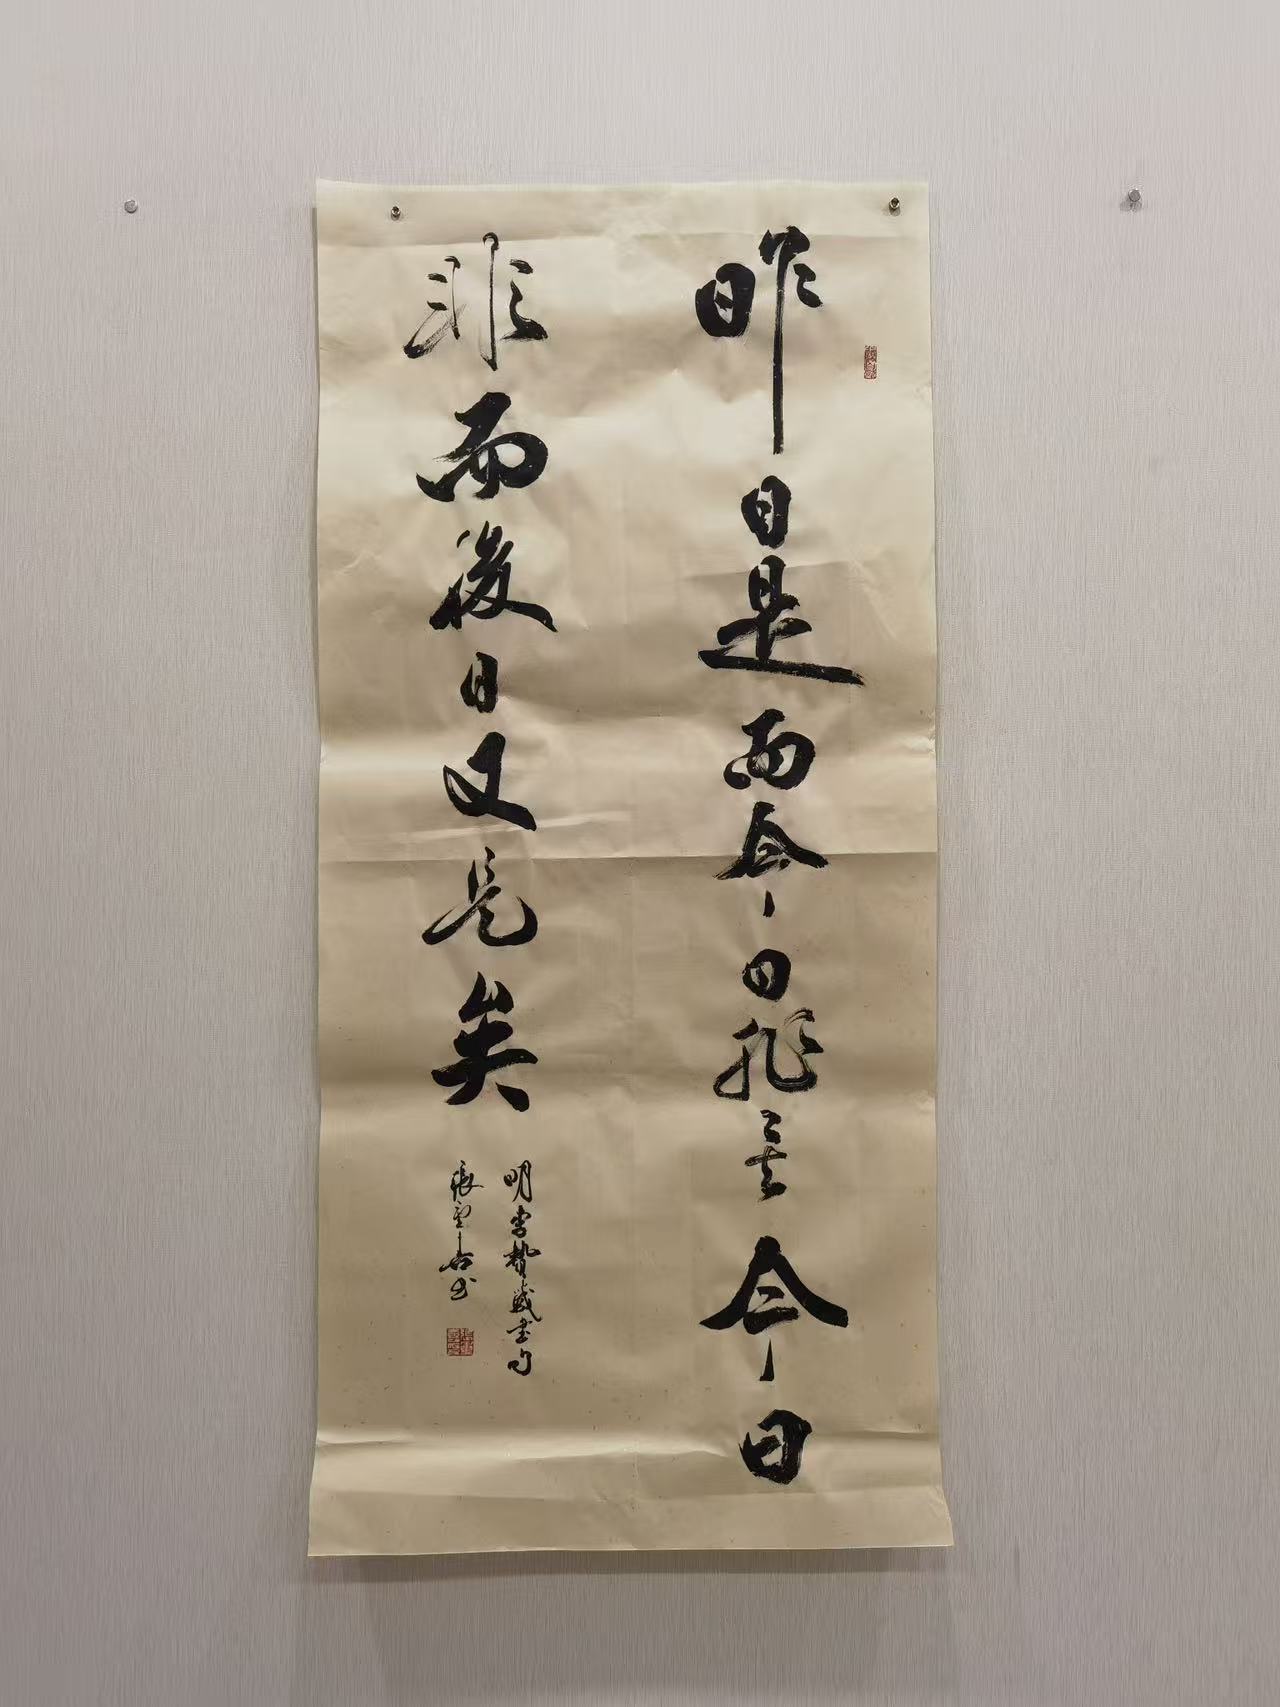 昨日是而今日非矣今日
非而後日又是矣
明李贄藏書句
張雲書